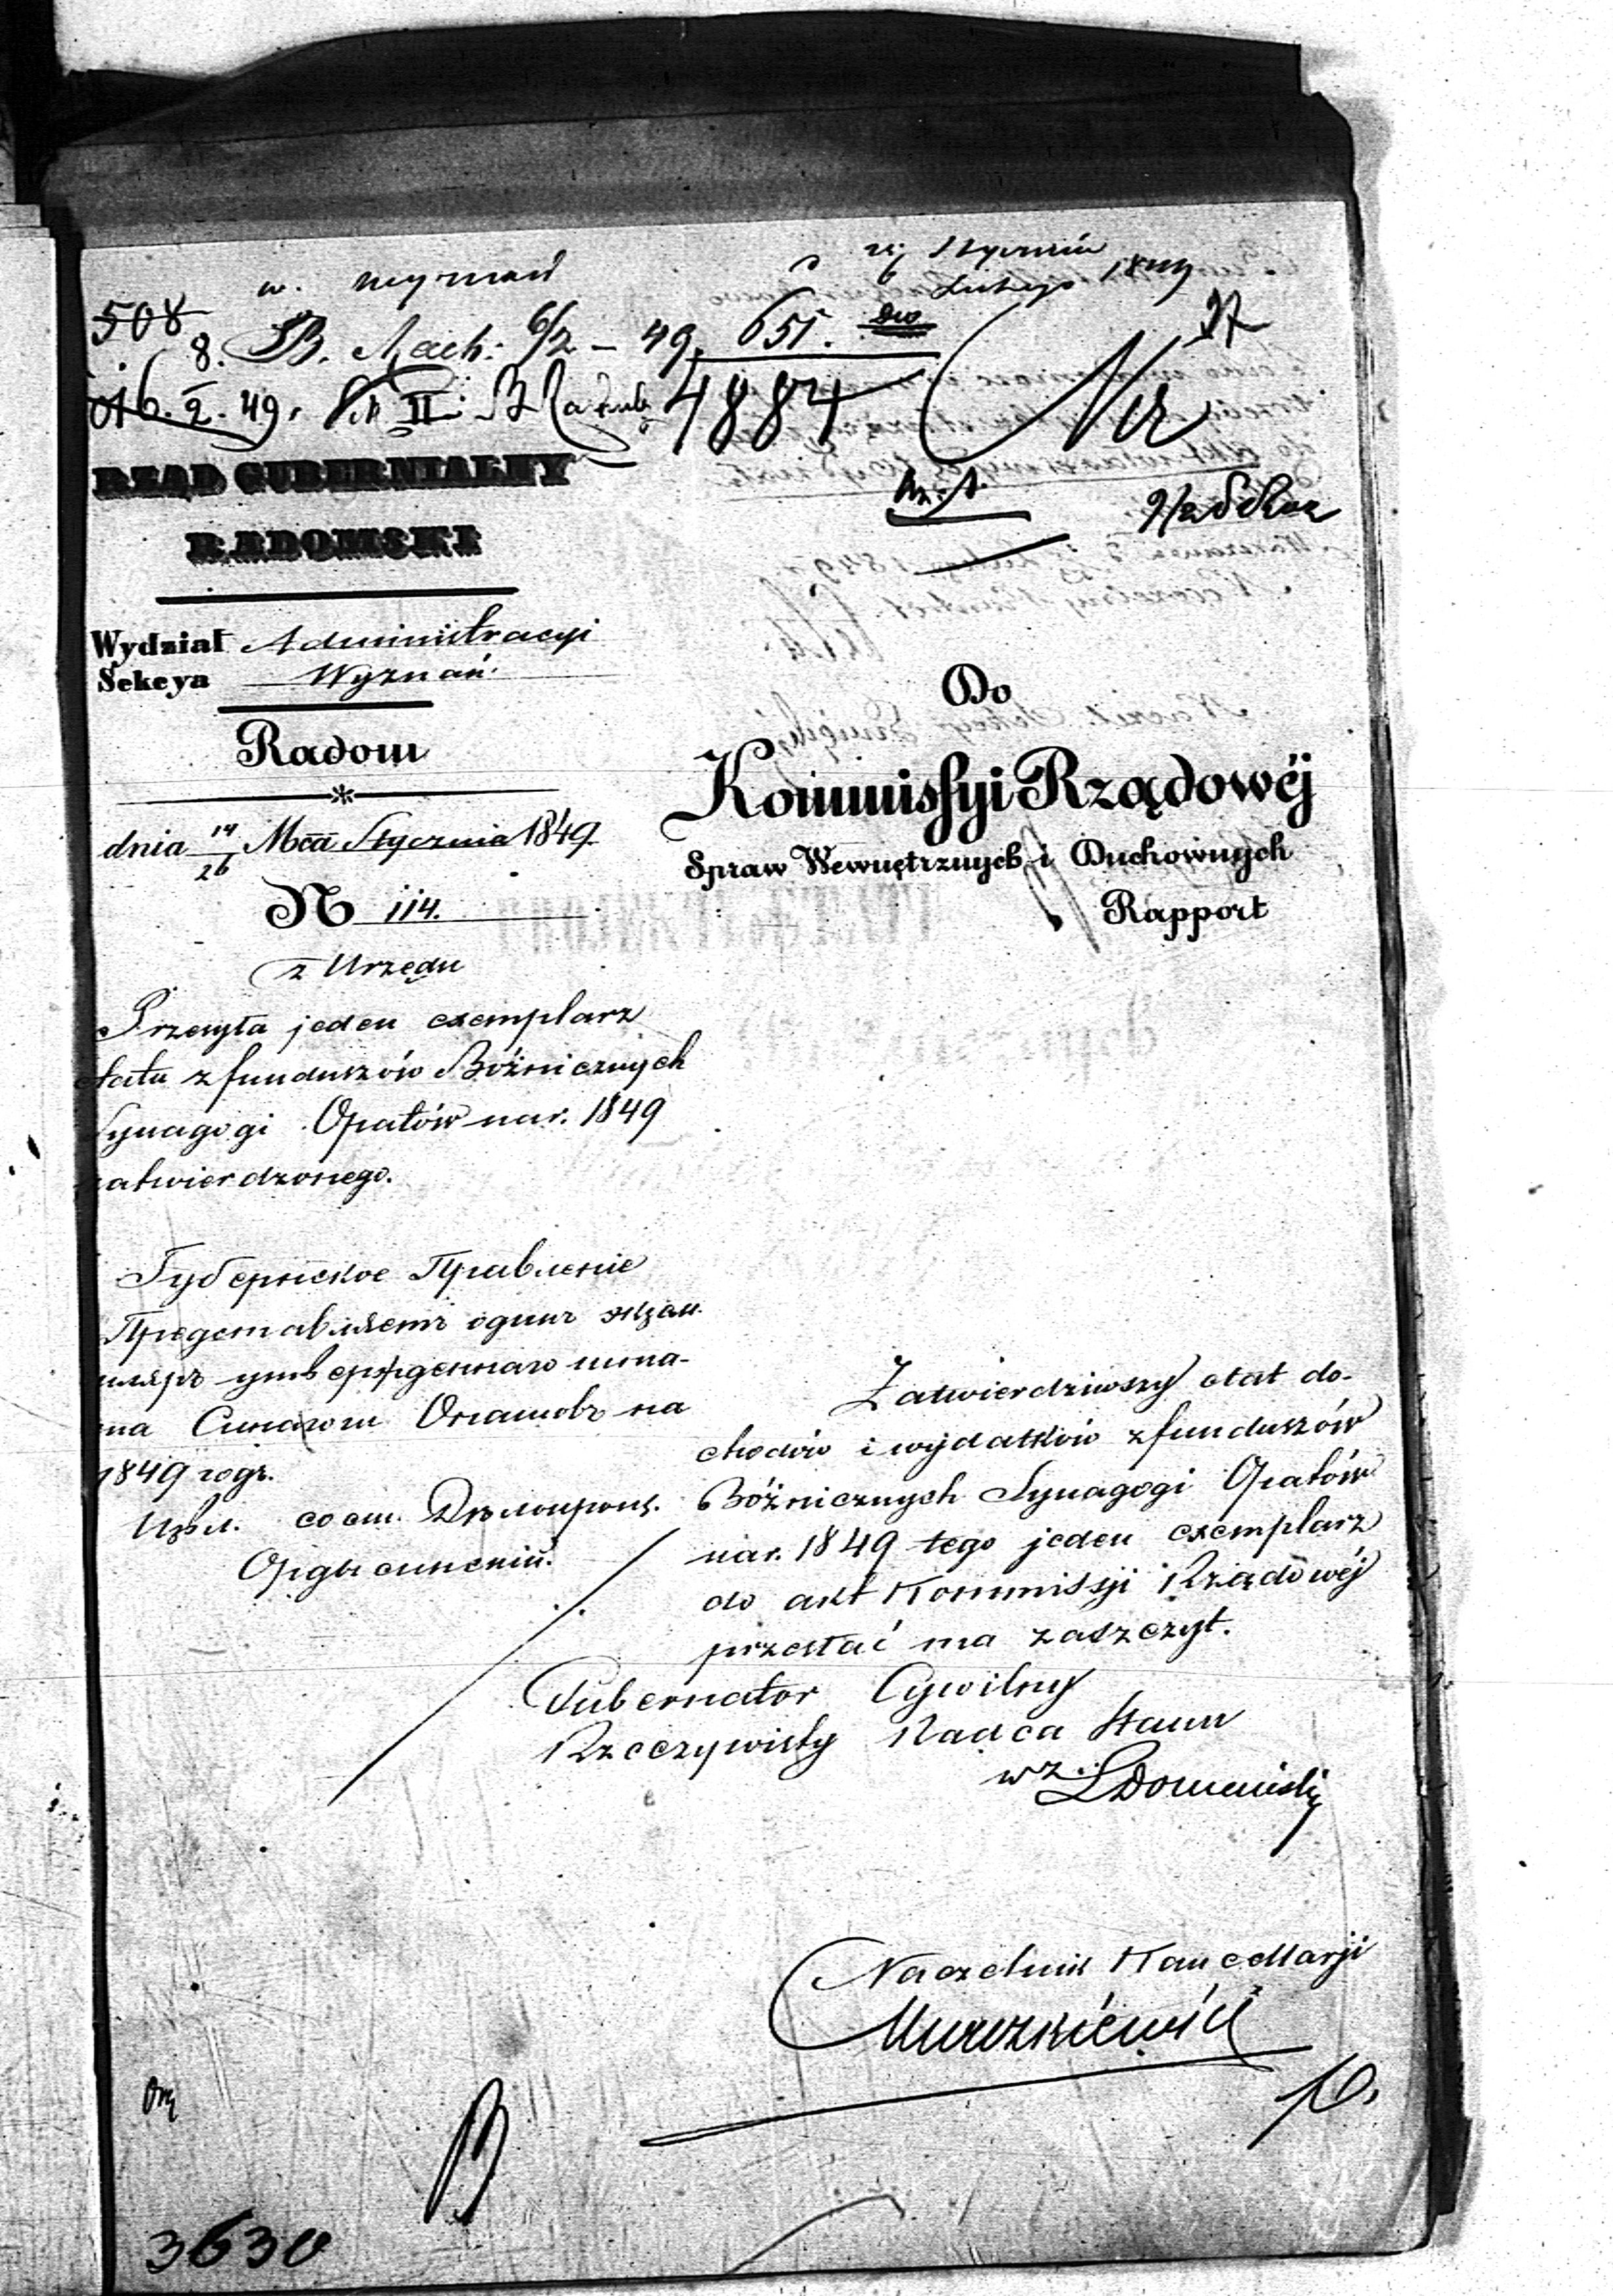 w. wyznań
25 Stycznia
6 Lutego 1849
508
8. B. Rach: 6/2 - 49. 651.
16. 2. 49. II
4884
RZĄD GUBERNIALNY
RADOMSKI
Wydział Administracyi
Sekcya Wyznań.
Radom
dnia 14/26 Mca Stycznia 1849
N 114.
z Urzędu
Przesyła jeden exemplarz
etatu z funduszów Bóżniczych
Synagogi Opatów na r. 1849
zatwierdzonego.
Губернское Правленіе
Представляетъ одинъ экзем-
пляръ утвержденнаго шта-
та Синагоги Опатовъ на
1849 годъ.
Do
Kommissyi Rządowéj
Spraw Wewnętrznych i Duchownych
Rapport
Zatwierdziwszy etat do-
chodów i wydatków z funduszów
Bóżnicznych Synagogi Opatów
na r. 1849 tego jeden exemplarz
do akt Kommissji Rządowéj
przesłać ma zaszczyt.
Gubernator Cywilny
Rzeczywisty Radca Stanu
wz.
Naczelnik Kancellarji
3630